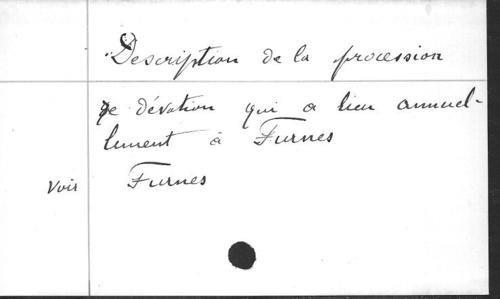 Description de la procession
de dévotion qui a lieu annuel-
lement à Furnes
Voir Furnes